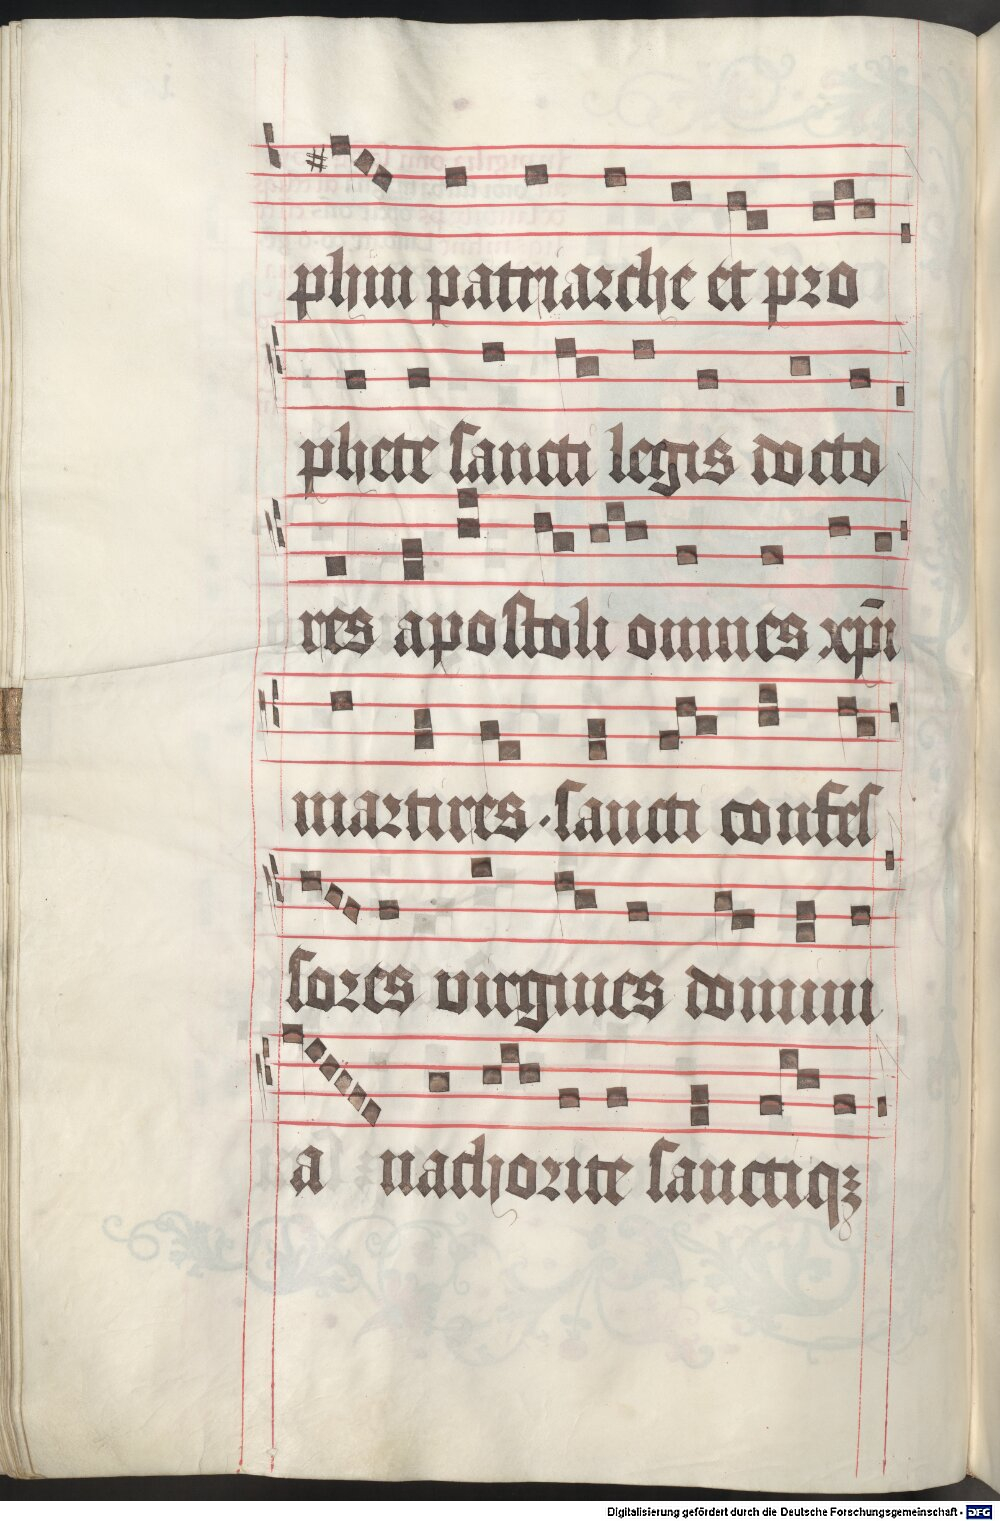 phin patriarche et pro
phete sancti legis docto
res apostoli omnes xp̄i
martires · sancti confes
sores virgines domini
a nachorite sanctiqꝫ
Digitalisierung gefördert durch die Deutsche Forschungsgemeinschaft - DFG